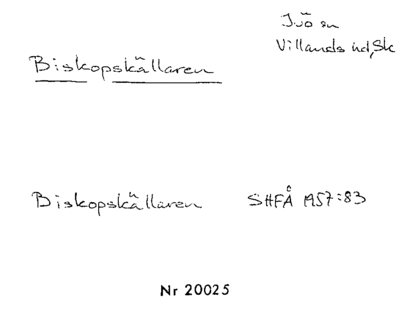 Ivö sn
Villands hd, Sk
Biskopskällaren
Biskopskällaren SHFÅ 1957:83
Nr 20025